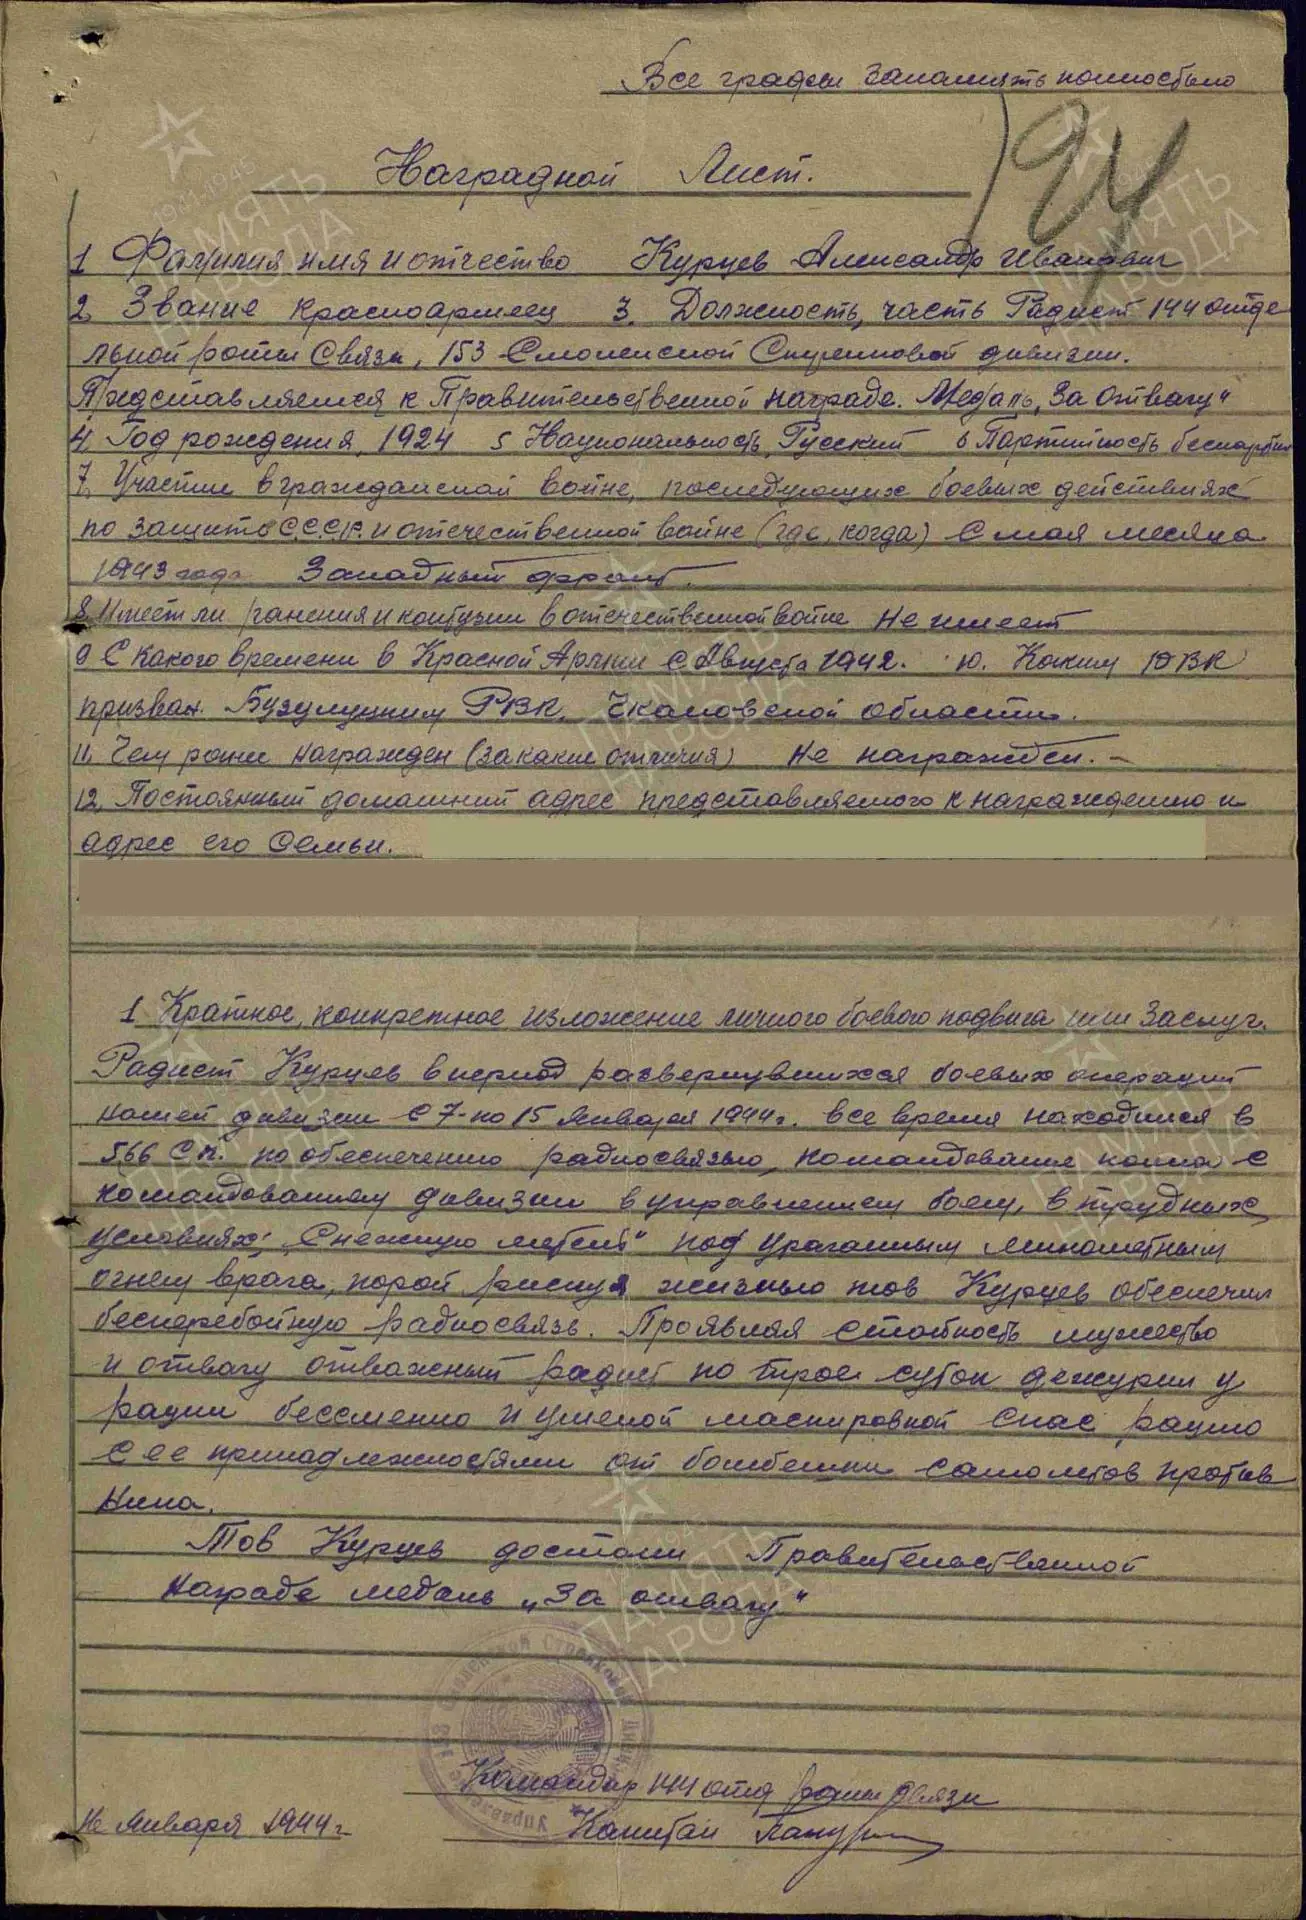 Все графы заполнять полностью
194
Наградной Лист.
1 Фамилия имя и отчество Курцев Александр Иванович
2. Звание красноармеец 3. Должность, часть Радист 144 отде
льной роты Связи, 153 Смоленской Стрелковой дивизии.
Представляется к Правительственной награде. Медаль „За отвагу"
4. Год рождения, 1924 5 Национальность, Русский 6 Партийность беспартий
7. Участие в гражданской войне, последующих боевых действиях
по защите С.С.С.Р. и отечественной войне (где, когда) С мая месяца
1943 года Западный фронт.
8. Имеет ли ранения и контузии в отечественной войне Не имеет
9 С какого времени в Красной Армии С Августа 1942. 10. Каким РВК
призван. Бузулуцким РВК. Чкаловской области.
11. Чем ранее награжден (за какие отличия) Не награжден. –
12. Постоянный домашний адрес представляемого к награждению и
адрес его Семьи.
1 Краткое, конкретное изложение личного боевого подвига или Заслуг.
Радист Курцев в период развернувшихся боевых операций
нашей дивизии С 7-по 15 Января 1944г. все время находился в
566 С.п. по обеспечению радиосвязью, командование полка с
командованием дивизии в управлением боем, в трудных
условиях; „Снежную метель" под ураганным минометным
огнем врага, порой рискуя жизнью тов Курцев обеспечил
бесперебойную радиосвязь. Проявляя стойкость мужество
и отвагу отважный радист по трое суток дежурил у
рации бессменно и умелой маскировкой спас рацию
с ее принадлежностями от бомбежки самолетов против
ника.
Тов Курцев достоин Правительственной
награде медаль „За отвагу"
Командир 144 отд роты связи
16 Января 1944 г. Капитан